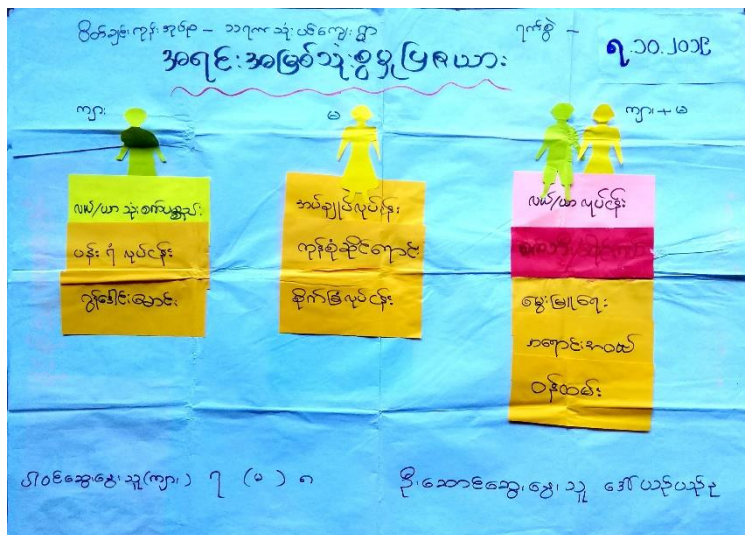 ကုန်းအုပ်စု - သရက သုံးပင်ကျေးရွာ
ရက်စွဲ -
၇.၁၀.၂၀၁၉
အရင်းအမြစ်သုံးစွဲမှုပြဇယား
ကျား
မ
ကျား + မ
လယ်/ယာ သုံးစက်ပစ္စည်း
ပန်းရံ လုပ်ငန်း
ထွန်ဒေါင်းမောင်း
အပ်ချုပ်လုပ်ငန်း
ကုန်စုံဆိုင်ရောင်း
စိုက်မြုံလုပ်ငန်း
လယ်/ယာ လုပ်ငန်း
မွေးမြူရေး
အရောင်းအဝယ်
ဝန်ထမ်း
ပါဝင်ဆွေးနွေးသူ (ကျား) ၇ (မ) ၈
ဦးဆောင်ဆွေးနွေးသူ ဒေါ်ယဉ်ယဉ်နု